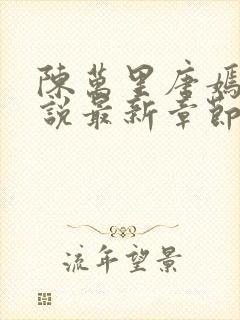 陳萬里唐嫣
說最新章節
流年望景